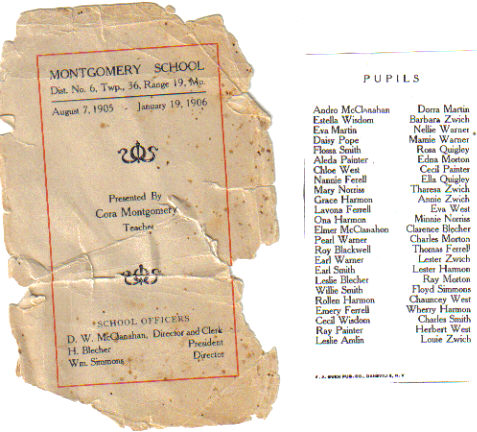 MONTGOMERY SCHOOL
Dist. No. 6, Twp., 36, Range 19, Mo.
August 7, 1905 - January 19, 1906
Presented By
Cora Montgomery
Teacher
SCHOOL OFFICERS
D. W. McClanahan, Director and Clerk
H. Blecher President
Wm. Simmons Director
PUPILS
Andro McClanahan Dorra Martin
Estella Wisdom Barbara Zwich
Eva Martin Nellie Warner
Daisy Pope Mamie Warner
Flossa Smith Rosa Quigley
Aleda Painter Edna Morton
Chloe West Cecil Painter
Nannie Ferell Ella Quigley
Mary Norriss Tharesa Zwich
Grace Harmon Annie Zwich
Lavona Ferrell Eva West
Ona Harmon Minnie Norriss
Elmer McClanahon Clarence Blecher
Pearl Warner Charles Morton
Roy Blackwell Thomas Ferrell
Earl Warner Lester Zwich
Earl Smith Lester Harmon
Leslie Blecher Ray Morton
Willie Smith Floyd Simmons
Rollen Harmon Chauncey West
Emery Ferrell Wherry Harmon
Cecil Wisdom Charles Smith
Ray Painter Herbert West
Leslie Amlin Louie Zwich
F. A. OWEN PUB. CO., DANSVILLE, N. Y.